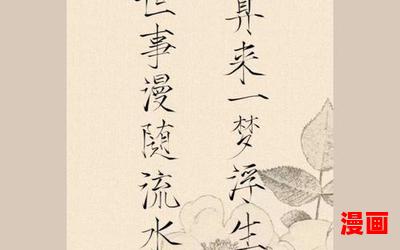 世事漫随流水
算来一梦浮生
漫画